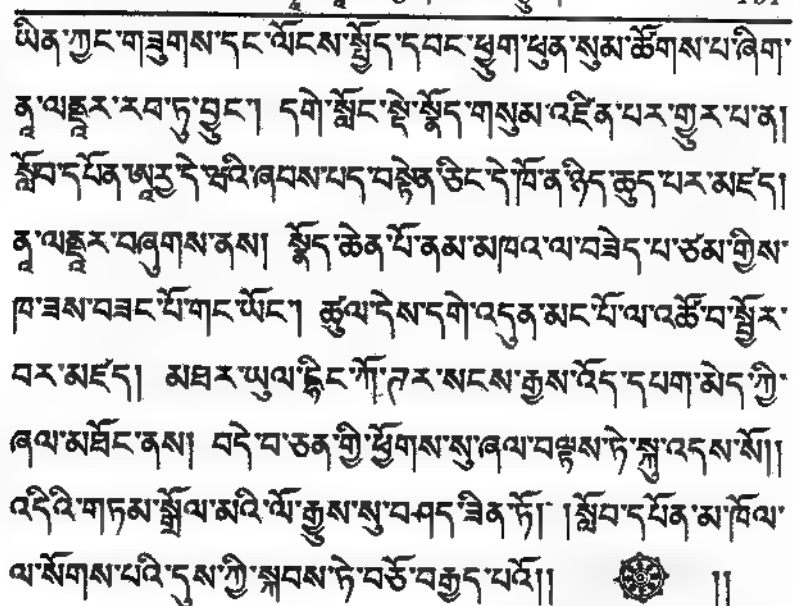 ཡིན་ཀྱང་གཟུགས་དང་ལོངས་སྤྱོད་དབང་ཕྱུག་ཕུན་སུམ་ཚོགས་པ་ཞིག་
ནཱ་ལནྡཱར་རབ་ཏུ་བྱུང་། དགེ་སློང་སྡེ་སྣོད་གསུམ་འཛིན་པར་གྱུར་པ་ན།
སློབ་དཔོན་ཨཱརྱ་དེ་ཝའི་ཞབས་པད་བསྟེན་ཅིང་དེ་ཁོ་ན་ཉིད་ཆུད་པར་མཛད།
ནཱ་ལནྡཱར་བཞུགས་ནས། སྣོད་ཆེན་པོ་ནམ་མཁའ་ལ་བཟེད་པ་ཙམ་གྱིས་
ཁ་ཟས་བཟང་པོ་གང་ཡོང་། ཚུལ་དེས་དགེ་འདུན་མང་པོ་ལ་འཚོ་བ་སྦྱོར་
བར་མཛད། མཐར་ཡུལ་དྷིང་ཀོ་ཊར་སངས་རྒྱས་འོད་དཔག་མེད་ཀྱི་
ཞལ་མཐོང་ནས། བདེ་བ་ཅན་གྱི་ཕྱོགས་སུ་ཞལ་བལྟས་ཏེ་སྐུ་འདས་སོ།།
འདིའི་གཏམ་སྒྲོལ་མའི་ལོ་རྒྱུས་སུ་བཤད་ཟིན་ཏོ། །སློབ་དཔོན་མ་ཁོལ་
ལ་སོགས་པའི་དུས་ཀྱི་སྐབས་ཏེ་བཅོ་བརྒྱད་པའོ།། །།